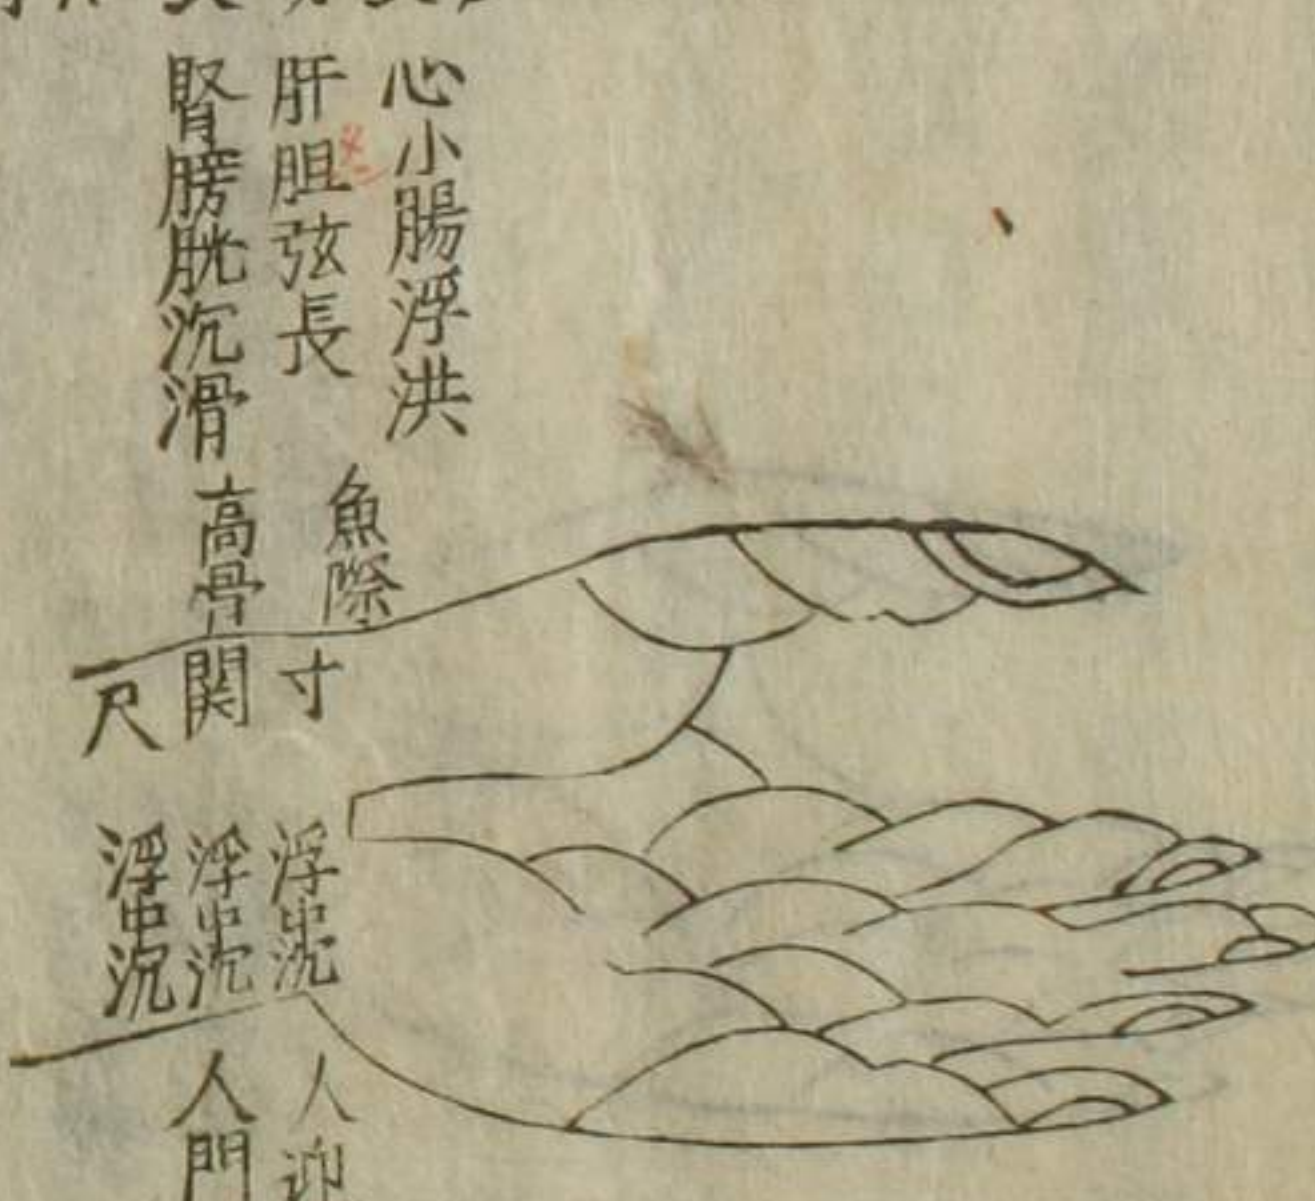 心小腸浮洪
肝胆弦長
腎膀胱沉滑
魚際
高骨
寸
関
尺
浮中沉
浮中沉
浮中沉
人迎
人門